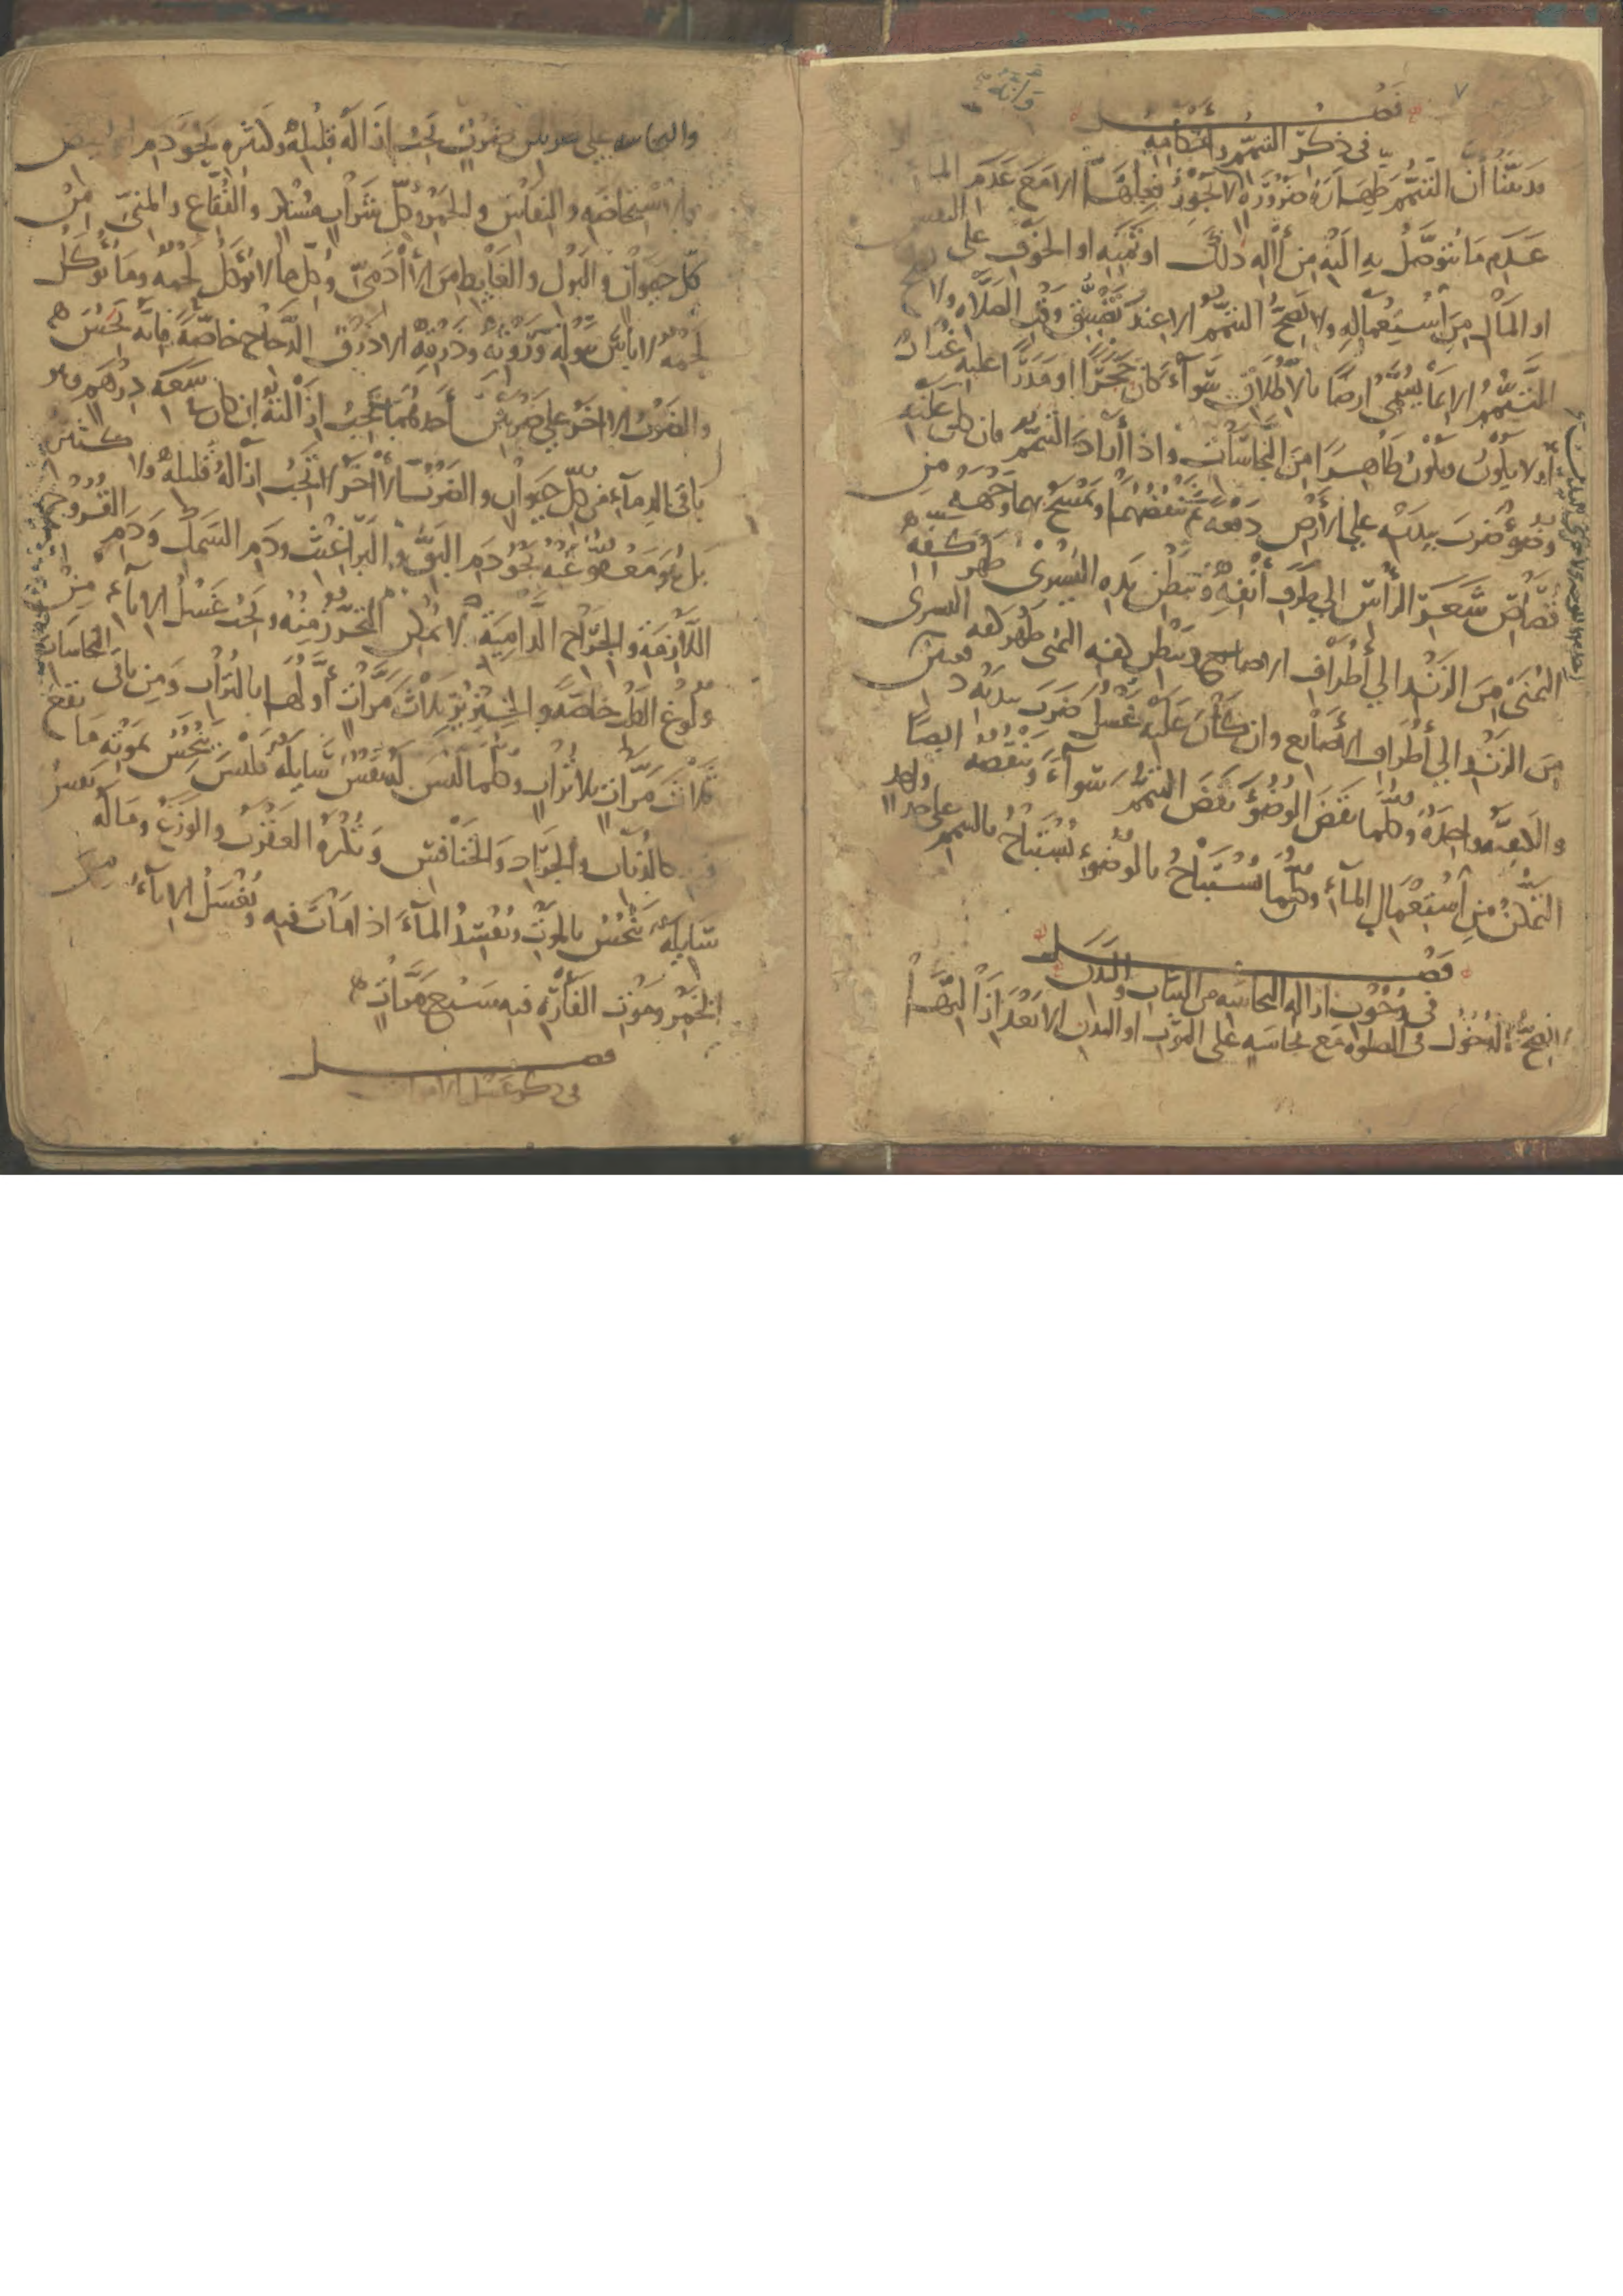 ٧
فصل
في ذكر التيمم وأحكامه
قد بينا أن التيمم طهارة ضرورة لا يجوز فعلها إلا مع عدم الماء أو
عدم ما يتوصل به إليه من آلة ذلك أو ثمنه أو الخوف على النفس
أو المال من استعماله ولا يصح التيمم إلا عند تضيق وقت الصلاة ولا يصح
التيمم إلا بما يسمى أرضا بالاطلاق سواء كان حجرا أو مدرا عليه غبار
أو لا يكون ويكون طاهرا من النجاسات وإذا أراد التيمم فإن كان عليه
وضوء ضرب بيديه على الأرض دفعة ثم ينفضهما ويمسح بهما وجهه من
قصاص شعر الرأس إلى طرف أنفه وببطن يده اليسرى ظهر كفه
اليمنى من الزند إلى أطراف الأصابع وببطن كفه اليمنى ظهر كفه اليسرى
من الزند إلى أطراف الأصابع وإن كان عليه غسل ضرب بيديه دفعتين
والكيفية واحدة وكلما نقض الوضوء نقض التيمم سواء وينقضه أيضا
التمكن من استعمال الماء وكلما يستباح بالوضوء يستباح بالتيمم على حد واحد
فصل
في وجوب إزالة النجاسة من الثياب والبدن
لا يصح الدخول في الصلوة مع نجاسة على الثوب أو البدن إلا بعد إزالتها
والنجاسة على ضربين ضرب يجب إزالة قليله وكثيره نحو دم الحيض
والاستحاضة والنفاس والخمر وكل شراب مسكر والفقاع والمني من
كل حيوان والبول والغايط من الآدمي وكل ما لا يؤكل لحمه وما يؤكل
لحمه لا بأس ببوله وروثه وذرقه إلا ذرق الدجاج خاصة فإنه نجس
والضرب الآخر على ضربين أحدهما يجب إزالته إن كان سعة درهم وهو
باقي الدماء من كل حيوان والضرب الآخر لا تجب إزالة قليله ولا كثيره
بل هو معفو عنه نحو دم البق والبراغيث ودم السمك ودم القروح
اللازمة والجراح الدامية لا يمكن التحرز منه ويجب غسل الإناء من
ولوغ الكلب خاصة والخنزير ثلاث مرات أولها بالتراب ومن باقي النجاسات
ثلاث مرات بلا تراب وكلما ليس له نفس سايلة فليس ينجس بموته ما يقع
فيه كالذباب والجراد والخنافس ويكره العقرب والوزغ وما له نفس
سايلة ينجس بالموت ويفسد الماء إذا مات فيه ويغسل الإناء من
الخمر وموت الفأرة فيه سبع مرات
فصل
في ذكر غسل الأموات